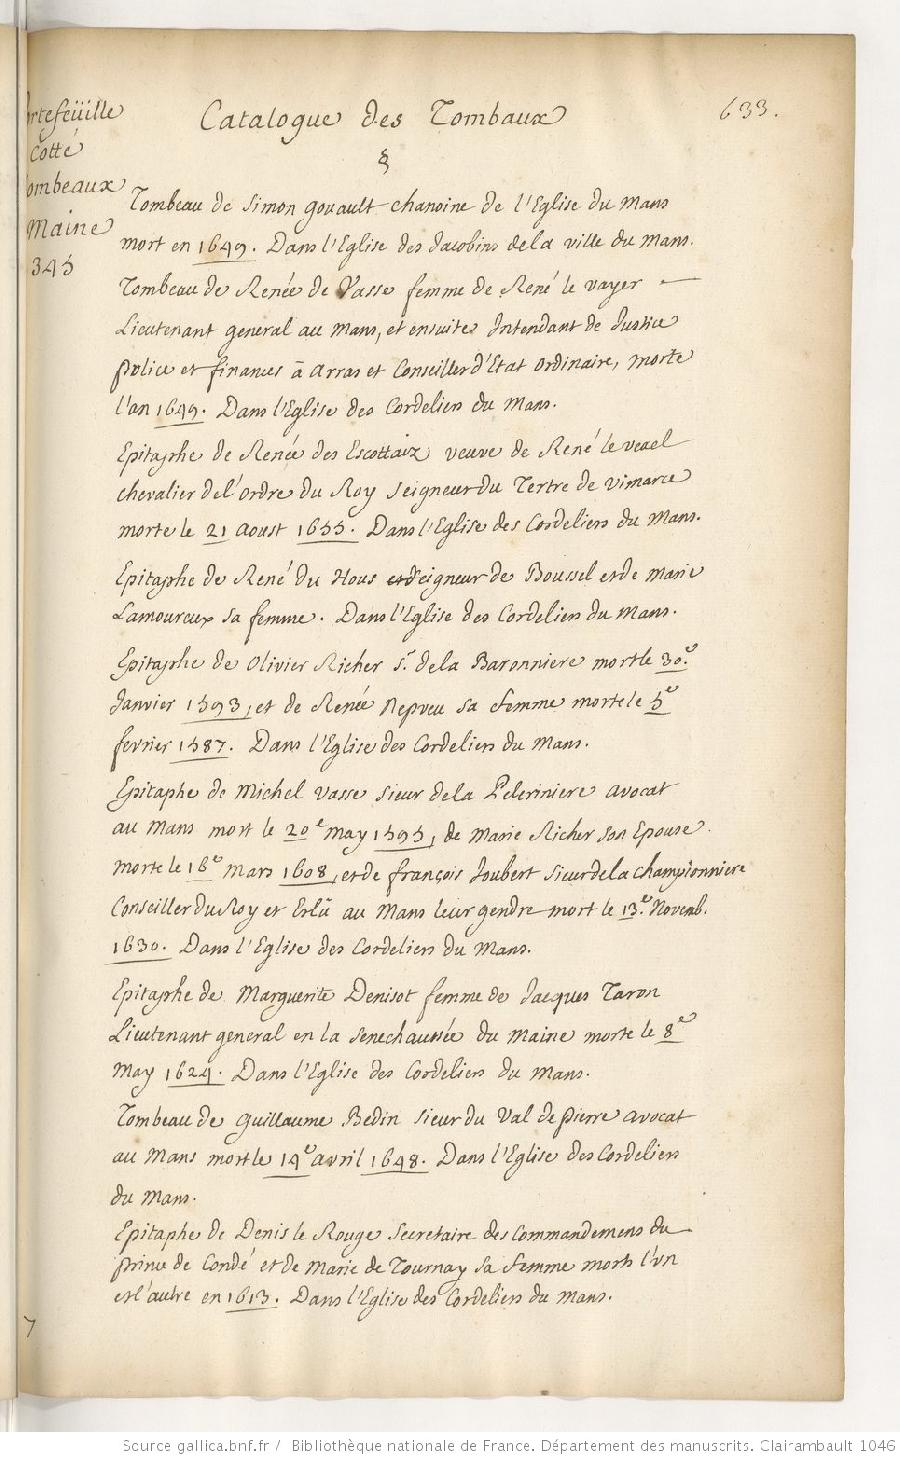 Portefeüille
Cotté
Tombeaux
Maine
345
Catalogue des Tombaux
633.
§
Tombeau de Simon gouault chanoine de l'Eglise du Mans
mort en 1649. Dans l'Eglise des Jacobins de la ville du Mans.
Tombeau de Renée de Vasse femme de René le vayer
Lieutenant general au Mans, et ensuite Intendant de Justice
police et finances à Arras et Conseiller d'Etat ordinaire, morte
l'an 1649. Dans l'Eglise des Cordeliers du Mans.
Epitaphe de Renée des Escottaiz veuve de René le
chevalier de l'ordre du Roy Seigneur du Tertre de vimarce
morte le 21 Aoust 1655. Dans l'Eglise des Cordeliers du Mans.
Epitaphe de René du Hous Seigneur de Boussel et de Marie
Lamoureux sa femme. Dans l'Eglise des Cordeliers du Mans.
Epitaphe de Olivier Richer Sr. de la Baronniere mort le 30.e
Janvier 1593, et de Renée Nepveu sa femme morte le 5e
fevrier 1587. Dans l'Eglise des Cordeliers du Mans.
Epitaphe de Michel Vasse sieur de la Peleriniere avocat
au Mans mort le 20e May 1595, de Marie Richer son Epouse
morte le 16e Mars 1608, et de françois Joubert sieur de la championniere
Conseiller du Roy et Eslû au Mans leur gendre mort le 13.e Novemb.
1630. Dans l'Eglise des Cordeliers du Mans.
Epitaphe de Marguerite Denisot femme de Jacques Taron
Lieutenant general en la Senechaussée du Maine morte le 8e
May 1624. Dans l'Eglise des Cordeliers du Mans.
Tombeau de Guillaume Bedin sieur du Val de pierre avocat
au Mans mort le 14e avril 1648. Dans l'Eglise des Cordeliers
du Mans.
Epitaphe de Denis le Rouge Secretaire des Commandemens du
prince de Condé et de Marie de Tournay sa femme morts l'un
et l'autre en 1613. Dans l'Eglise des Cordeliers du Mans.
Source gallica.bnf.fr / Bibliothèque nationale de France. Département des manuscrits. Clairambault 1046